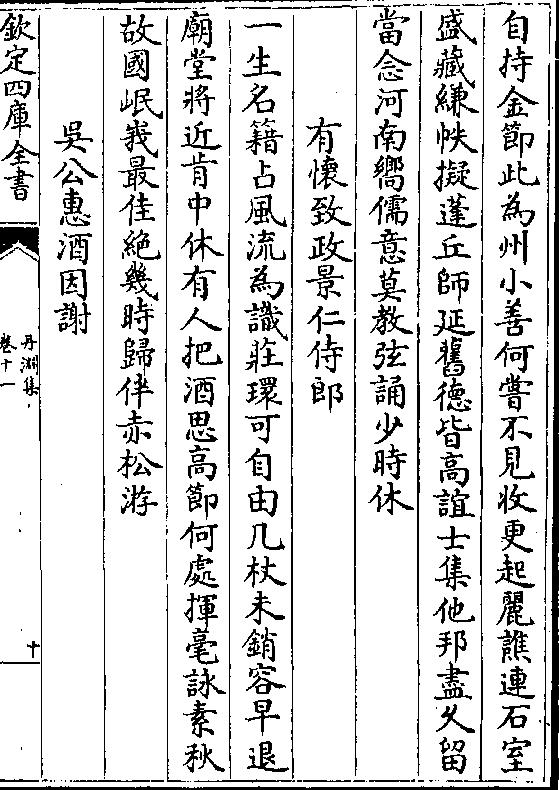 自持金節此為州小善何嘗不見收更起麗譙連石室
盛藏縑帙擬蓬丘師延舊德皆高誼士集他邦盡久留
當念河南嚮儒意莫教弦誦少時休
有懷致政景仁侍郎
一生名籍占風流為識莊環可自由几杖未銷容早退
廟堂將近肯中休有人把酒思高節何處揮毫詠素秋
故國岷峩最佳絶幾時歸伴赤松游
吳公惠酒因謝
欽定四庫全書
丹淵集
卷十一
十